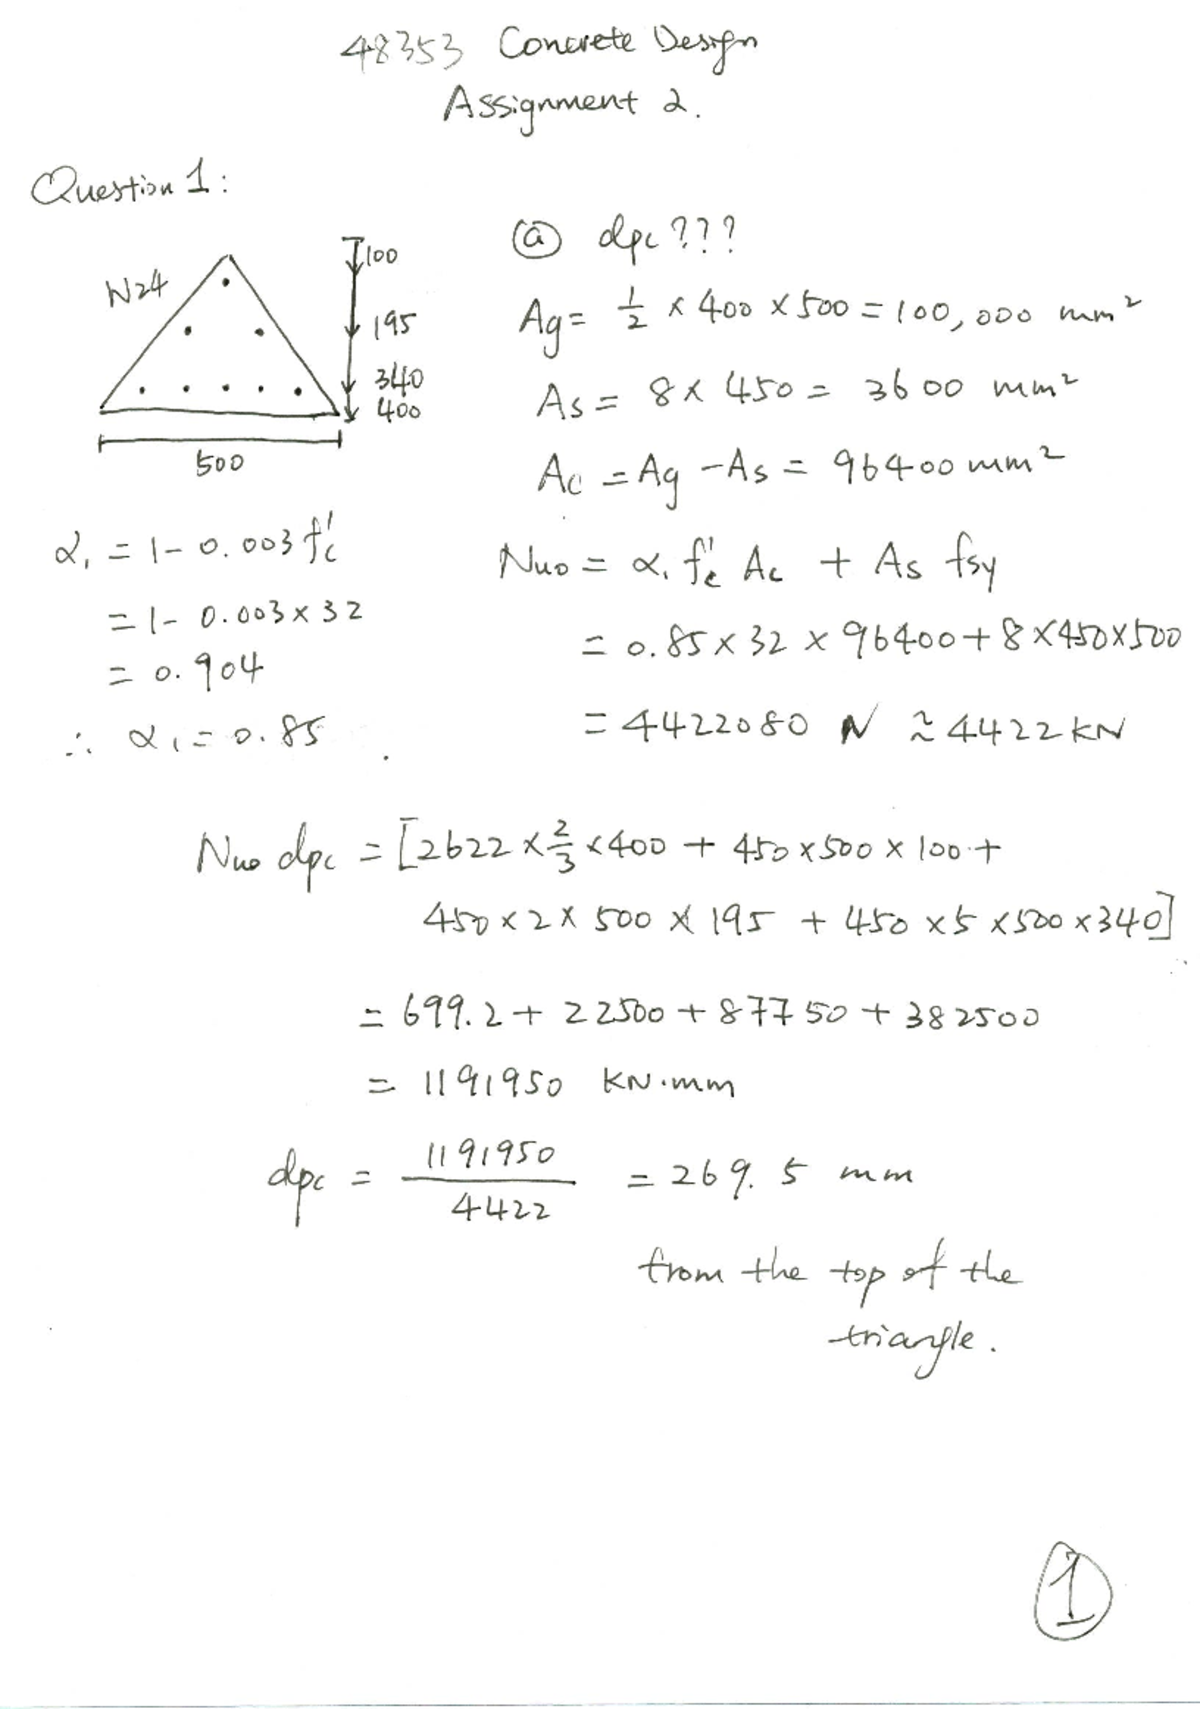 48353 Concrete Design
Assignment 2.
Question 1:
N24
100
195
340
400
500
ⓐ dpc ???
Ag = 1/2 × 400 × 500 = 100,000 mm²
As = 8 × 450 = 3600 mm²
Ac = Ag - As = 96400 mm²
α₁ = 1 - 0.003 f'c
= 1 - 0.003 × 32
= 0.904
∴ α₁ = 0.85
Nuo = α₁ f'c Ac + As fsy
= 0.85 × 32 × 96400 + 8 × 450 × 500
= 4422080 N ≈ 4422 kN
Nuo dpc = [2622 × 2/3 × 400 + 450 × 500 × 100 +
450 × 2 × 500 × 195 + 450 × 5 × 500 × 340]
= 699.2 + 22500 + 87750 + 382500
= 1191950 kN.mm
dpc = 1191950 / 4422 = 269.5 mm
from the top of the
triangle.
1